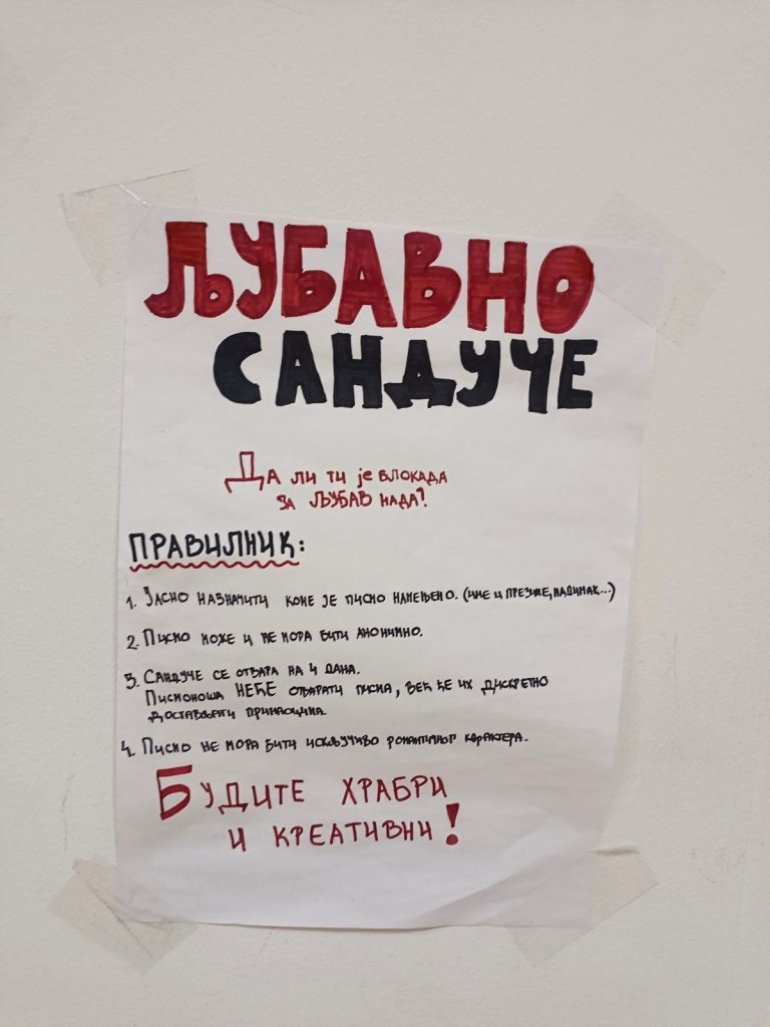 ЉУБАВНО
САНДУЧЕ
Да ли ти је блокада
за љубав нада?
ПРАВИЛНИК:
1. Јасно назначити коме је писмо намењено. (име и презиме, надимак...)
2. Писмо може и не мора бити анонимно.
3. Сандуче се отвара на 4 дана.
Писмоноша НЕЋЕ отварати писма, већ ће их дискретно
достављати примаоцима.
4. Писмо не мора бити искључиво романтичног карактера.
Будите храбри
и креативни!